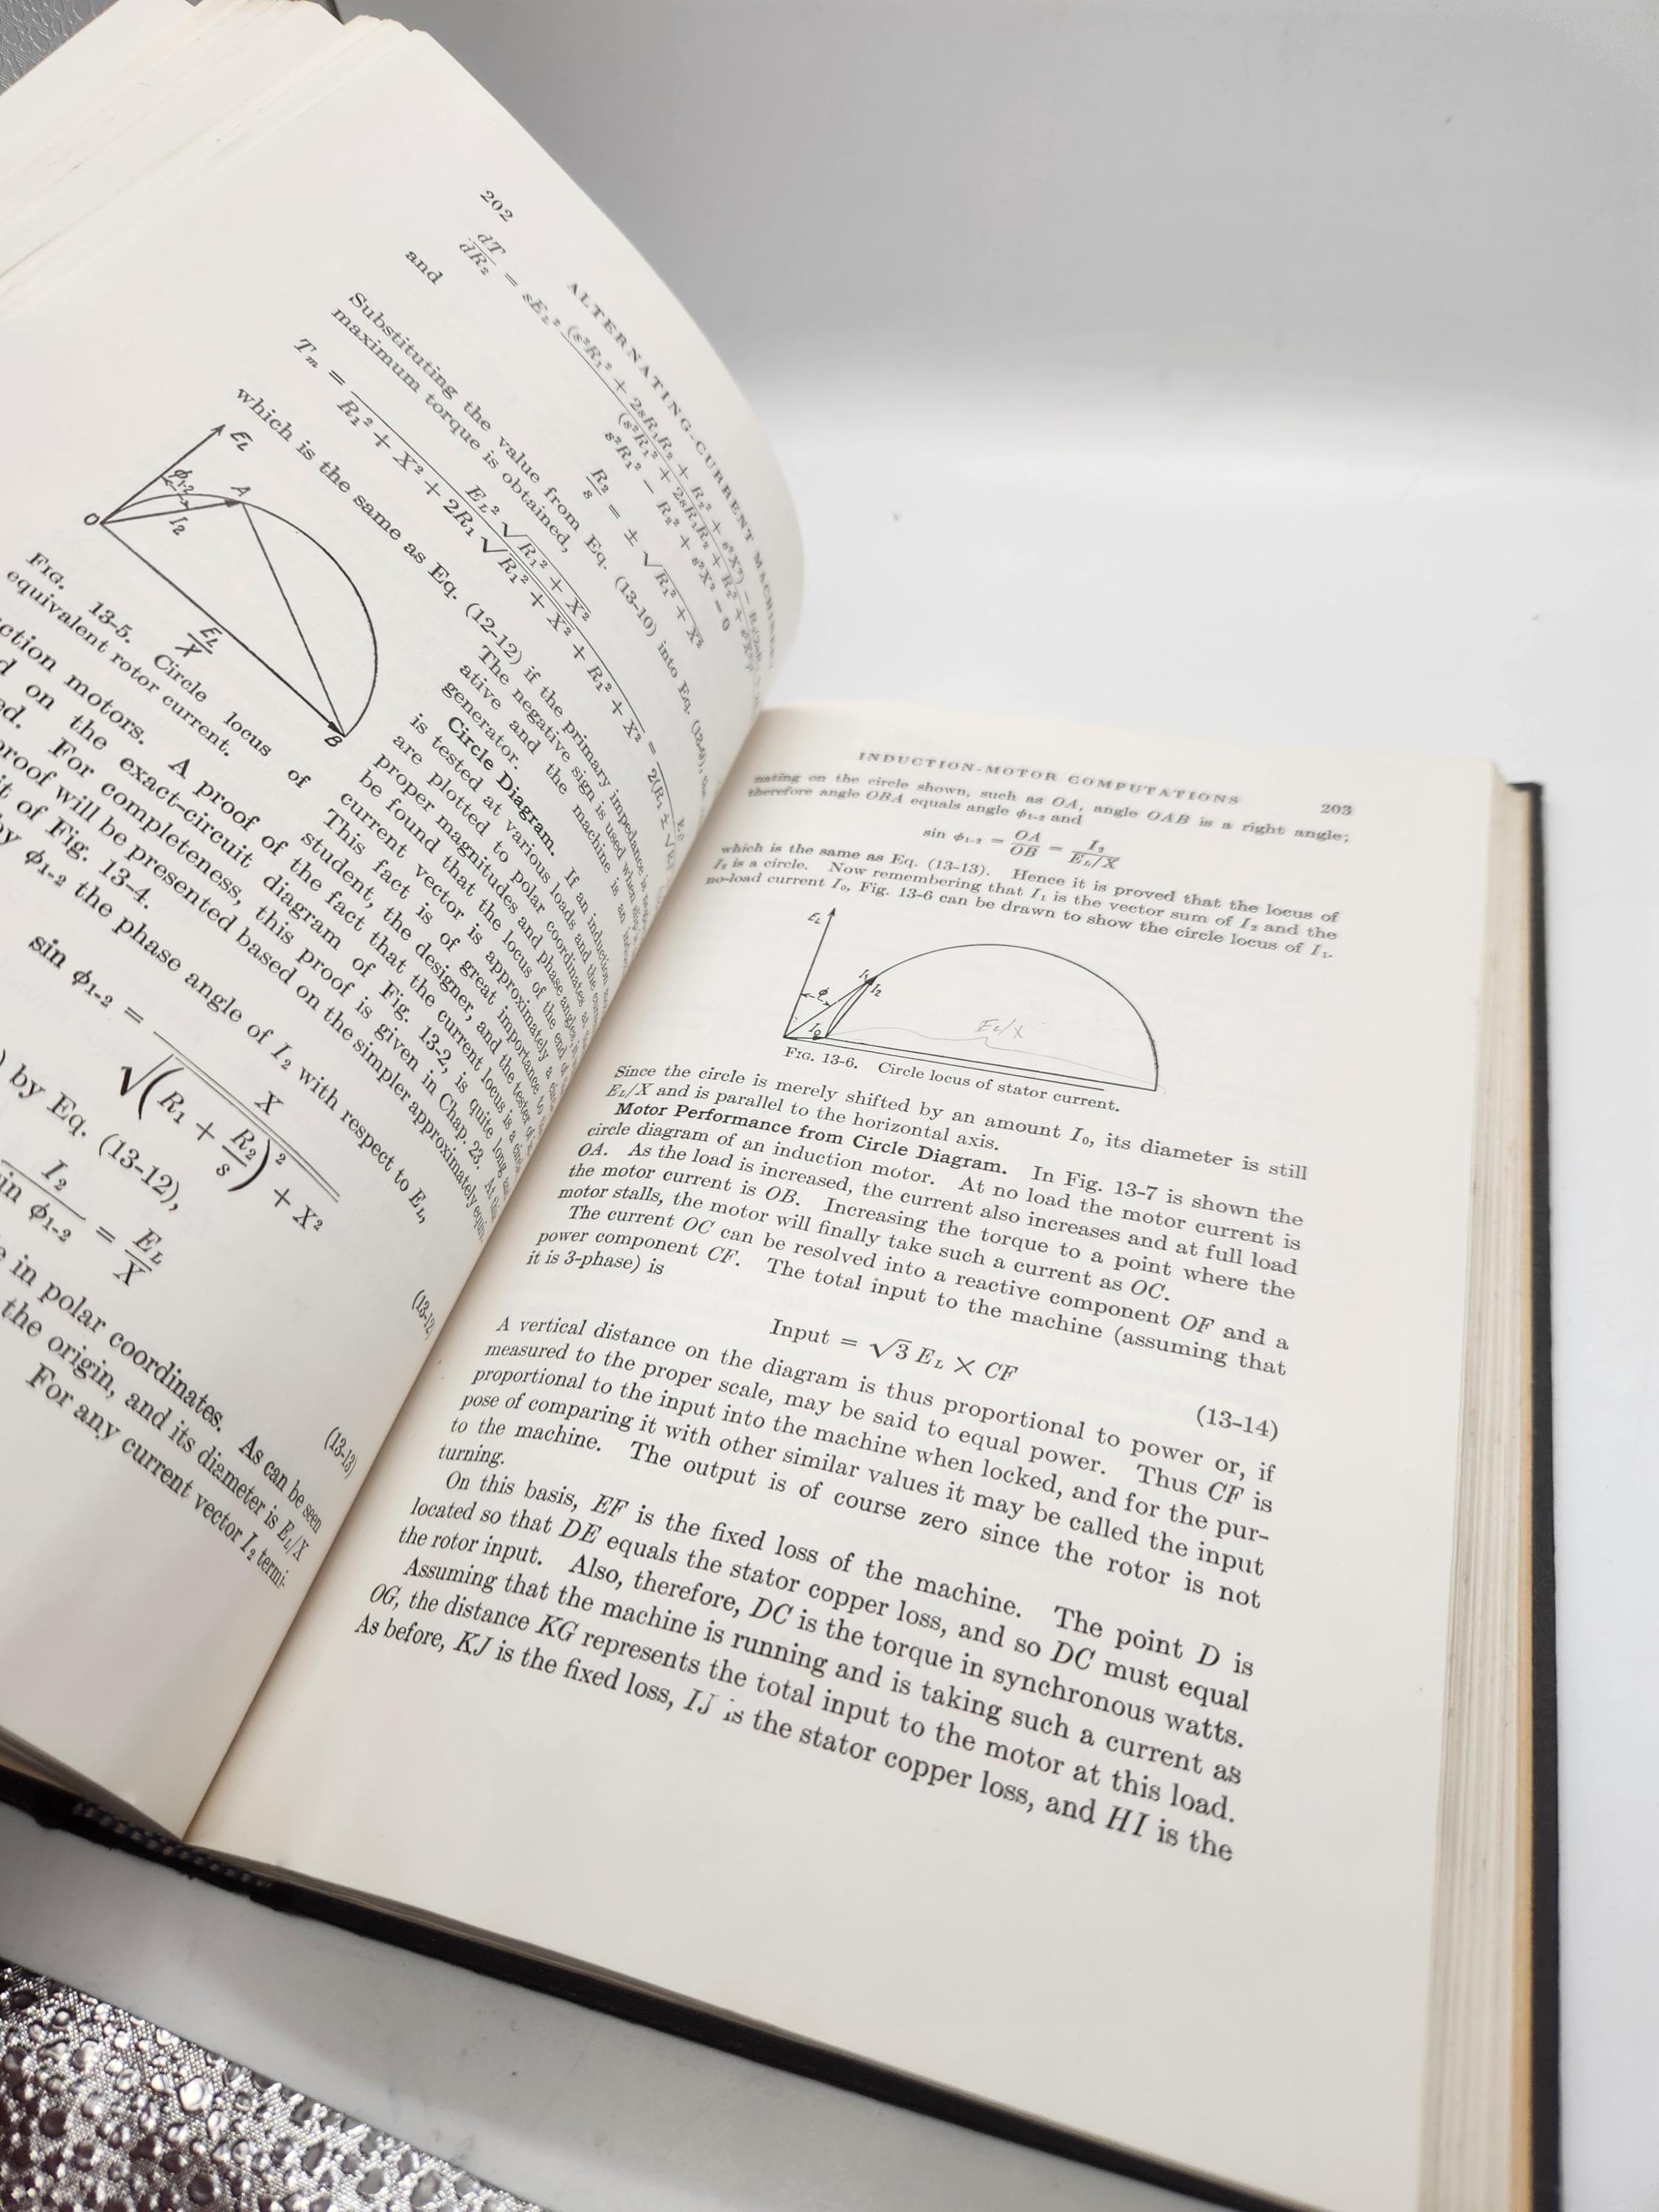 202
ALTERNATING-CURRENT
and
Substituting the value from Eq. (13-10) into Eq. (13-9),
maximum torque is obtained,
which is the same as Eq. (12-12) if the primary impedance is
The negative sign is used when
ative and the machine is an
generator.
Circle Diagram. If an induction
is tested at various loads and the
are plotted to polar coordinates
proper magnitudes and phase angles,
be found that the locus of the end of
current vector is approximately a
This fact is of great importance to
student, the designer, and the tester of
ction motors. A proof of the fact that the current locus is a
d on the exact-circuit diagram of Fig. 13-2, is quite long
ed. For completeness, this proof is given in Chap. 23.
proof will be presented based on the simpler approximately
it of Fig. 13-4.
by φ1-2 the phase angle of I2 with respect to EL,
EL
φ1-2
A
I2
O
EL/X
B
FIG. 13-5. Circle locus of
equivalent rotor current.
sin φ1-2 = X / √((R1 + R2/s)² + X²)
) by Eq. (13-12),
I2 / sin φ1-2 = EL/X
(13-13)
in polar coordinates. As can be seen
the origin, and its diameter is EL/X
For any current vector I2 termi-
INDUCTION-MOTOR COMPUTATIONS
203
nating on the circle shown, such as OA, angle OAB is a right angle;
therefore angle OBA equals angle φ1-2 and
sin φ1-2 = OA/OB = I2/(EL/X)
which is the same as Eq. (13-13). Hence it is proved that the locus of
I2 is a circle. Now remembering that I1 is the vector sum of I2 and the
no-load current I0, Fig. 13-6 can be drawn to show the circle locus of I1.
EL
I1
I2
φ
I0
EL/X
FIG. 13-6. Circle locus of stator current.
Since the circle is merely shifted by an amount I0, its diameter is still
EL/X and is parallel to the horizontal axis.
Motor Performance from Circle Diagram. In Fig. 13-7 is shown the
circle diagram of an induction motor. At no load the motor current is
OA. As the load is increased, the current also increases and at full load
the motor current is OB. Increasing the torque to a point where the
motor stalls, the motor will finally take such a current as OC.
The current OC can be resolved into a reactive component OF and a
power component CF. The total input to the machine (assuming that
it is 3-phase) is
Input = √3 EL × CF
(13-14)
A vertical distance on the diagram is thus proportional to power or, if
measured to the proper scale, may be said to equal power. Thus CF is
proportional to the input into the machine when locked, and for the pur-
pose of comparing it with other similar values it may be called the input
to the machine. The output is of course zero since the rotor is not
turning.
On this basis, EF is the fixed loss of the machine. The point D is
located so that DE equals the stator copper loss, and so DC must equal
the rotor input. Also, therefore, DC is the torque in synchronous watts.
Assuming that the machine is running and is taking such a current as
OG, the distance KG represents the total input to the motor at this load.
As before, KJ is the fixed loss, IJ is the stator copper loss, and HI is the